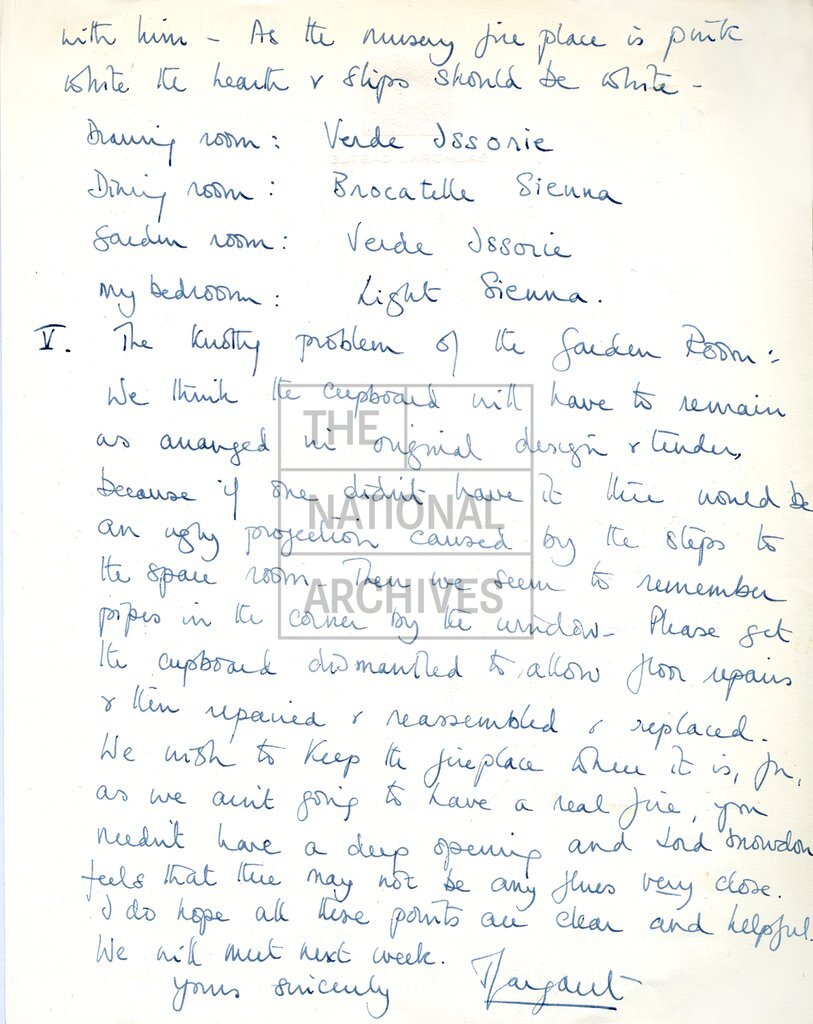 with him – As the nursery fire place is pink
white the hearth & slips should be white –
Drawing room: Verde Issorie
Dining room: Brocatelle Sienna
Garden room: Verde Issorie
My bedroom: Light Sienna.
V. The knotty problem of the Garden Room:
We think the cupboard will have to remain
as arranged in original design & tender,
because if one didn't have it there would be
an ugly projection caused by the steps to
the spare room – Then we seem to remember
pipes in the corner by the window – Please get
the cupboard dismantled to allow floor repairs
& then repaired & reassembled & replaced.
We wish to keep the fireplace where it is, for,
as we ain't going to have a real fire, you
needn't have a deep opening and Lord Snowdon
feels that there may not be any flues very close.
I do hope all these points are clear and helpful.
We will meet next week.
Yours sincerely Margaret
THE
NATIONAL
ARCHIVES